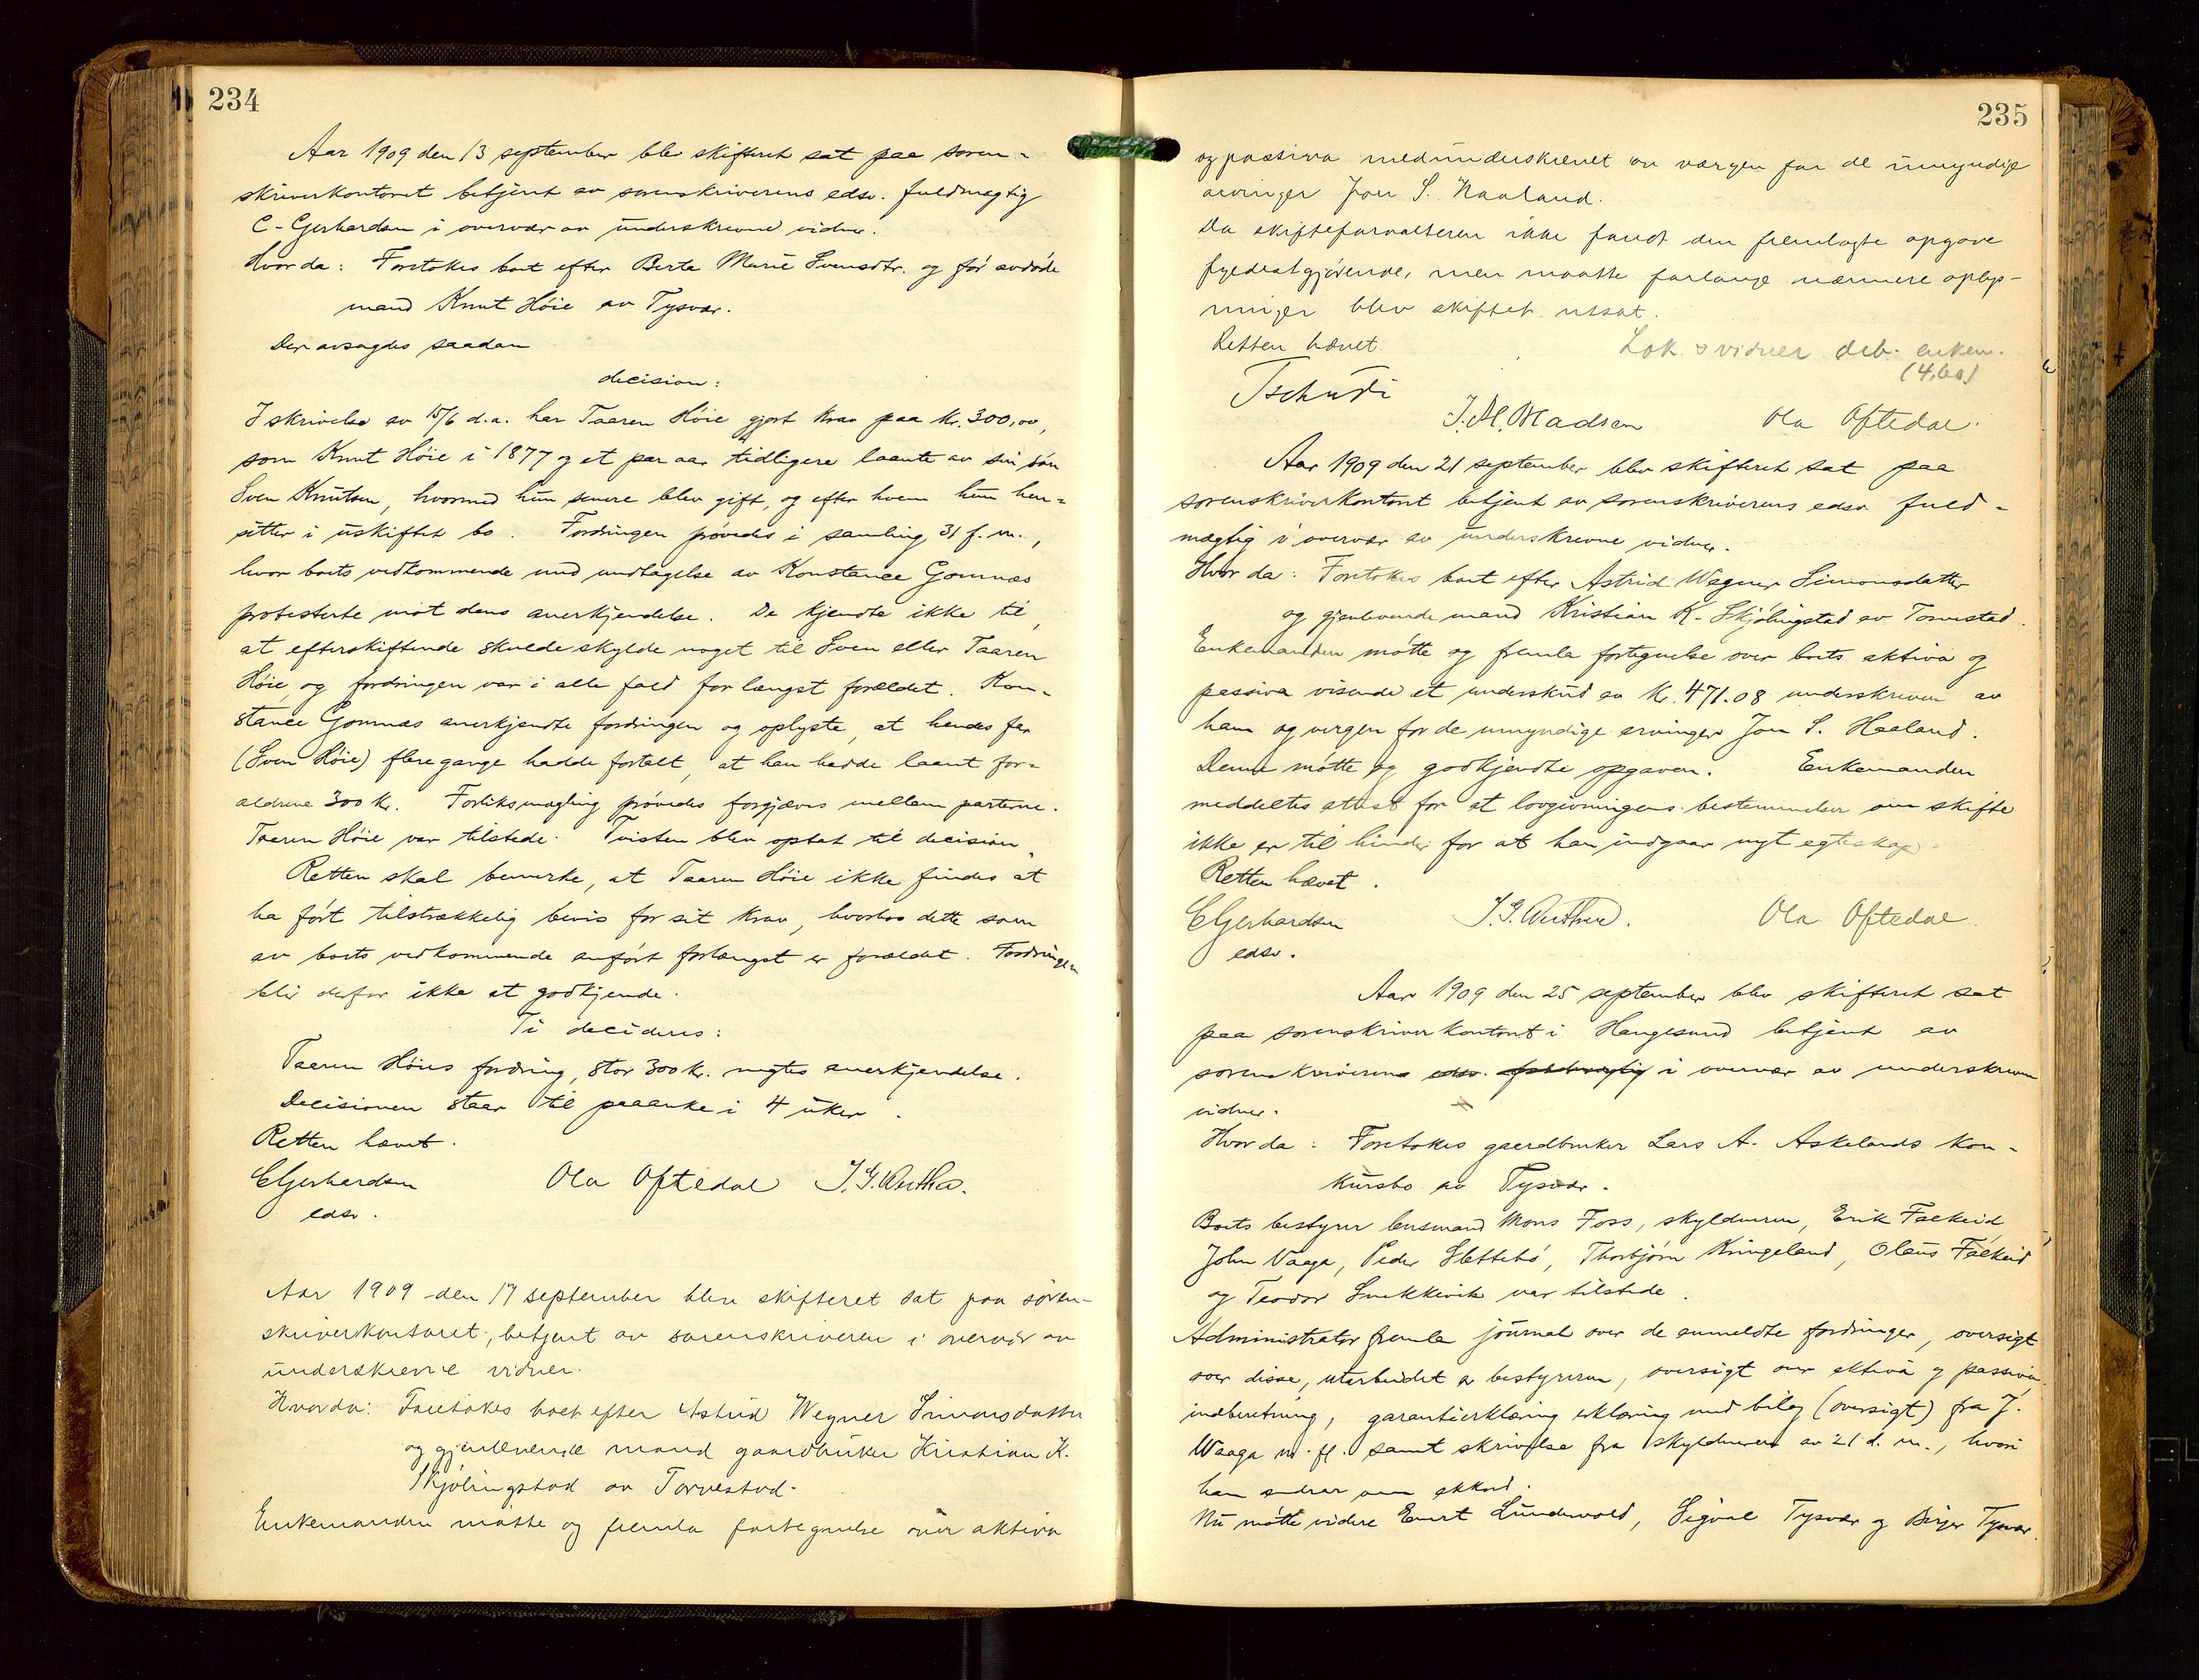 234
Aar 1909 den 13 september blev skifteret sat paa soren-
skriverkontoret betjent av sorenskriverens edsv. fuldmægtig
C. Gerhardsen i overvær av underskrevne vidner.
Hvorda: Foretokes boet efter Berta Marie Svensdtr. og før avdøde
mand Knut Høie av Tysvær.
Der avsagdes saadan
decision:
I skrivelse av 15/6 d.a. har Taaren Høie gjort krav paa kr. 300,00,
som Knut Høie i 1877 og et par aar tidligere laante av sin søn
Sven Knutsen, hvormed hun senere blev gift, og efter hvem hun hen-
sitter i uskiftet bo. Fordringen prøvedes i samling 31 f. m.,
hvor boets vedkommende med undtagelse av Konstance Gomnæs
protesterte mot dens anerkjendelse. De kjendte ikke til,
at efterskiftende skulde skylde noget til Sven eller Taaren
Høie og fordringen var i alle fald for længst forældet. Kon-
stance Gomnæs anerkjendte fordringen og oplyste, at hendes far
(Sven Høie) flere gange hadde fortalt, at han hadde laant for-
ældrene 300 kr. Forliksmægling prøvedes forgjæves mellem parterne.
Taaren Høie var tilstede. Tvisten blev optat til decision.
Retten skal bemerke, at Taaren Høie ikke findes at
ha ført tilstrækkelig bevis for sit krav, hvorhos dette som
av boets vedkommende anført forlængst er forældet. Fordringen
blir derfor ikke at godkjende.
Ti decideres:
Taaren Høies fordring, stor 300 kr. negtes anerkjendelse.
Decisionen staar til paaanke i 4 uker.
Retten hævet.
CGerhardsen Ola Oftedal
edsv.
Aar 1909 den 17 september blev skifteret sat paa søren-
skriverkontoret, betjent av sorenskriveren i overvær av
underskrevne vidner.
Hvorda: Foretokes boet efter Astrid Wegner Simonsdatter
og gjenlevende mand gaardbruker Kristian K.
Skjølingstad av Torvestad.
Enkemanden møtte og fremla fortegnelse over aktiva
235
og passiva medunderskrevet av værgen for de umyndige
arvinger Jon S. Haaland.
Da skifteforvalteren ikke fandt den fremlagte opgave
fyldestgjørende, men maatte forlange nærmere oplys-
ninger blev skiftet utsat.
Retten hævet.
Lok & vidner deb. enkem.
(4,60)
Tschudi
J. M. Madsen Ola Oftedal.
Aar 1909 den 21 september blev skifteret sat paa
sorenskriverkontoret betjent av sorenskriverens edsv fuld-
mægtig i overvær av underskrevne vidner.
Hvor da: Foretokes boet efter Astrid Wegner Simonsdatter
og gjenlevende mand Kristian K. Skjølingstad av Torvestad.
Enkemanden møtte og fremla fortegnelse over boets aktiva og
passiva visende et underskud av kr. 471.08 underskreven av
ham og vergen for de umyndige arvinger Jon S. Haaland.
Denne møtte og godkjendte opgaven. Enkemanden
meddeltes attest for at lovgivningens bestemmelser om skifte
ikke er til hinder for at han indgaar nyt egteskap.
Retten hævet.
CGerhardsen Ola Oftedal
edsv.
Aar 1909 den 25 september blev skifteret sat
paa sorenskriverkontoret i Haugesund betjent av
sorenskriverens edsv. fuldmægtig i overvær av underskrevne
vidner.
Hvor da: Foretokes gaardbruker Lars A. Askelands kon-
kursbo av Tysvær.
Boets bestyrer lensmand Mons Foss, skyldneren, Erik Falkeid
John Vaaga, Peder Slettebø, Thorbjørn Kringeland, Olaus Falkeid
og Teodor var tilstede.
Administrator fremla journal over de anmeldte fordringer, oversigt
over disse, utarbeidet av bestyreren, oversigt over aktiva og passiva,
indberetning, garantierklæring erklæring med bilag (oversigt) fra J.
Waaga m. fl. samt skrivelse fra skyldneren av 21 d. m., hvori
han andrar om akkord.
Nu møtte videre Lundevold, Sigval Tysvær og Birger Tysvær.